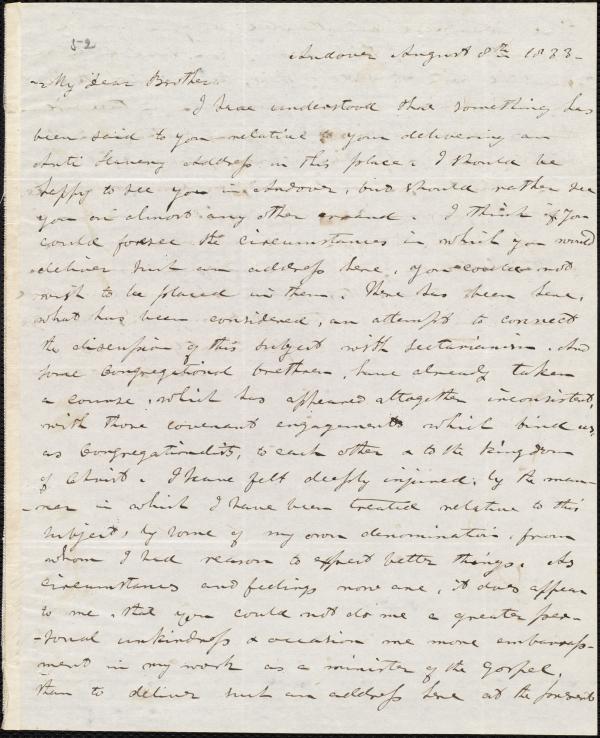 52
Andover August 8th 1833-
My dear Brother
I have understood that something has
been said to you relative to your delivering an
Anti Slavery Address in this place. I should be
happy to see you in Andover, but should rather see
you on almost any other errand. I think if you
could forsee the circumstances in which you would
deliver such an address here, you could not
wish to be placed in them. There has been here,
what has been considered, an attempt to connect
the discussion of this subject with sectarianism. And
some Congregational brethren, have already taken
a course, which has appeared altogether inconsistent,
with those covenant engagements which bind us,
as Congregationalists, to each other & to the Kingdom
of Christ. I have felt deeply injured, by the man-
-ner in which I have been treated relative to this
subject, by some of my own denomination, from
whom I had reason to expect better things. As
circumstances and feelings now are, it does appear
to me, that you could not do me a greater per-
-sonal unkindness & occasion me more embarrass-
ment in my work as a minister of the Gospel,
than to deliver such an address here at the present